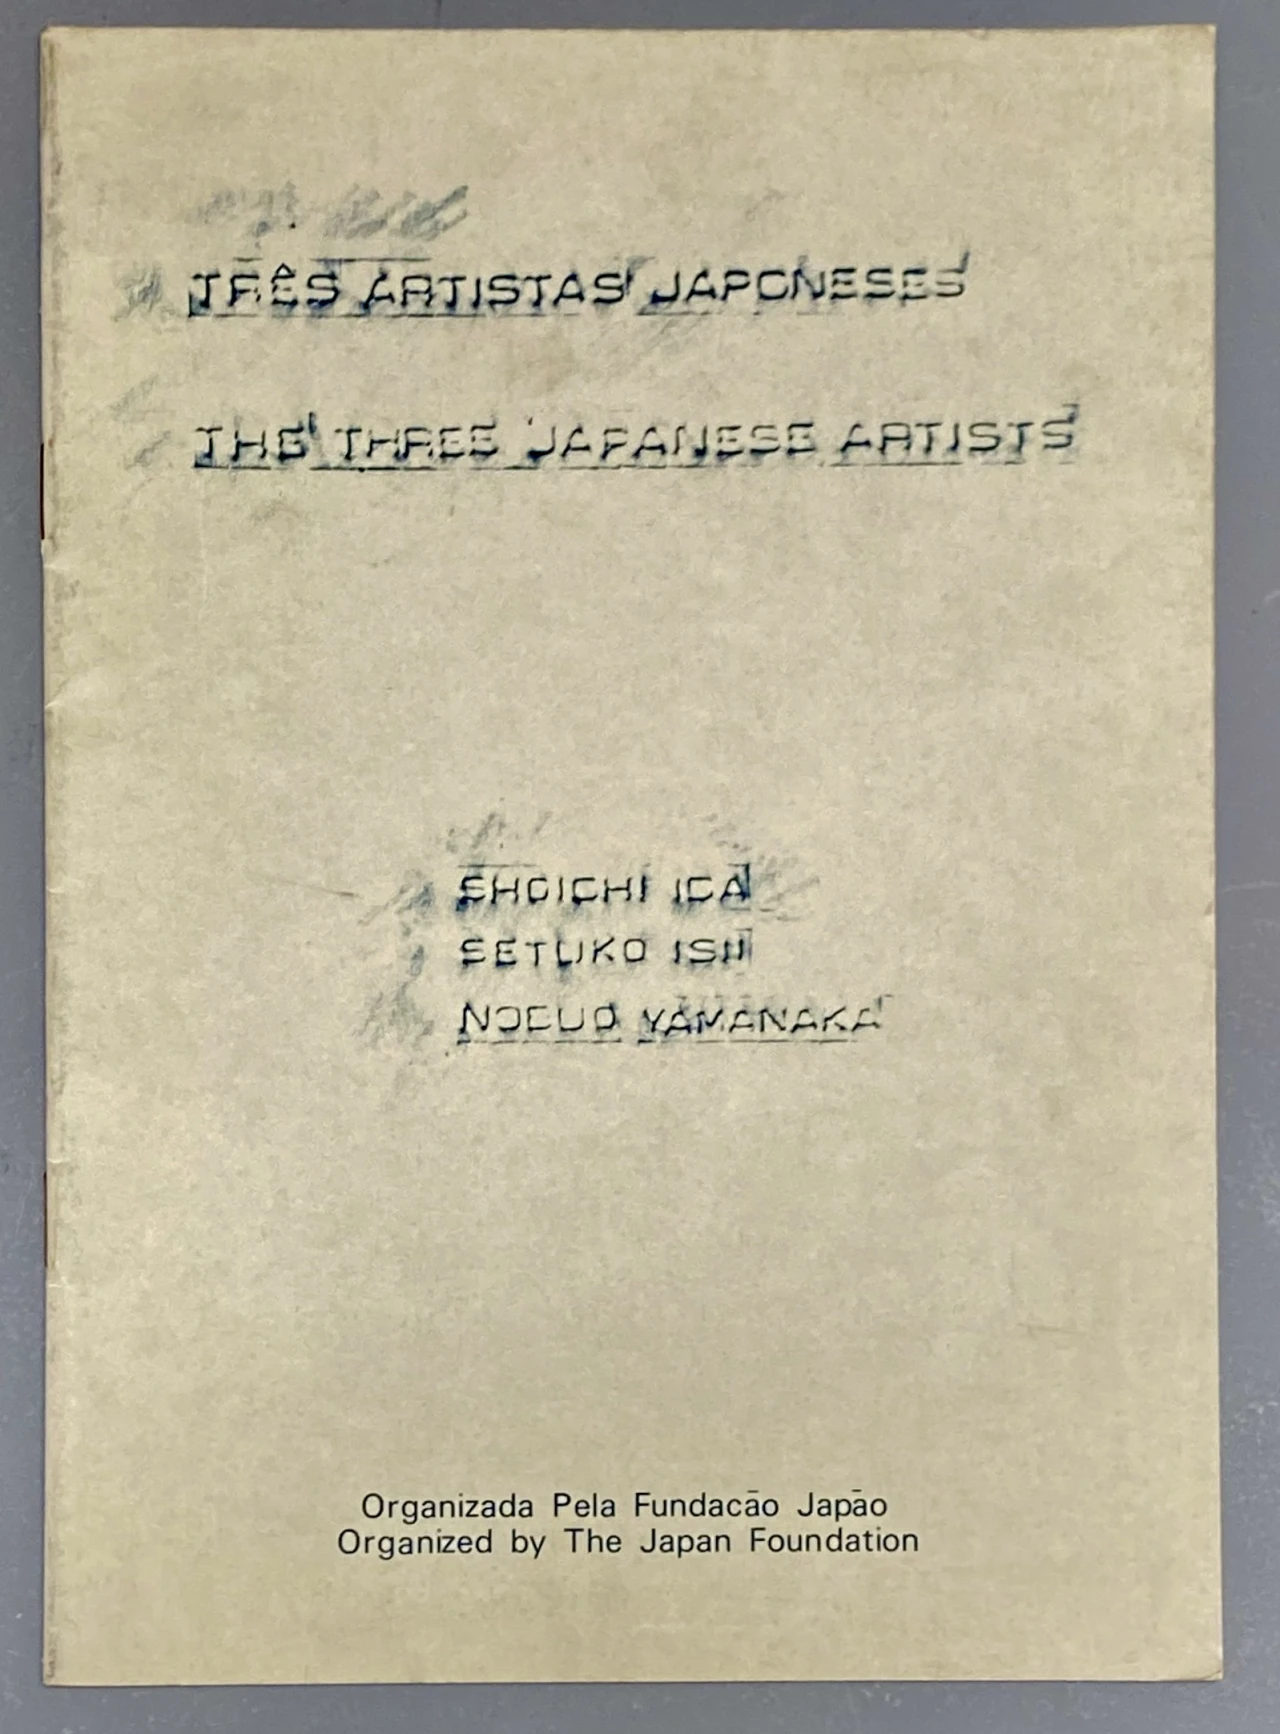 TRÊS ARTISTAS JAPONESES
THE THREE JAPANESE ARTISTS
SHOICHI IDA
SETUKO ISII
NOBUO YAMANAKA
Organizada Pela Fundacāo Japāo
Organized by The Japan Foundation